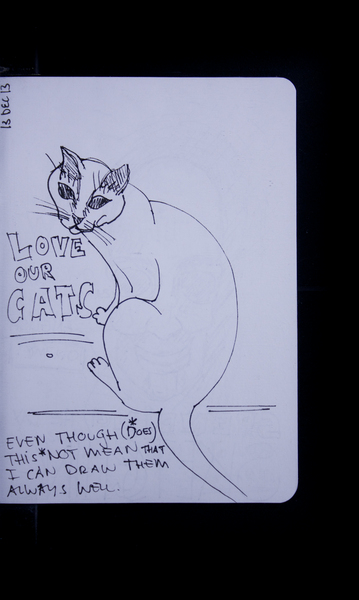 13 DEC 13
LOVE
OUR
CATS
EVEN THOUGH (*DOES)
THIS*NOT MEAN THAT
I CAN DRAW THEM
ALWAYS WELL.